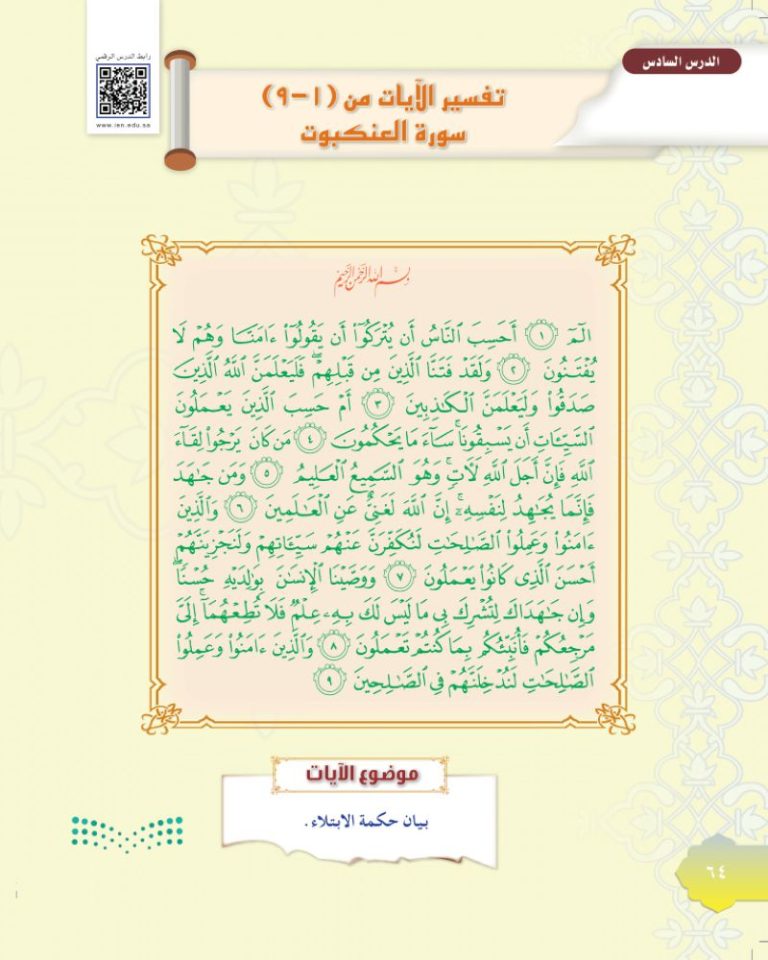 الدرس السادس
رابط الدرس الرقمي
www.ien.edu.sa
تفسير الآيات من (١-٩)
سورة العنكبوت
بِسْمِ اللَّهِ الرَّحْمَٰنِ الرَّحِيمِ
الٓمٓ ١ أَحَسِبَ ٱلنَّاسُ أَن يُتْرَكُوٓا۟ أَن يَقُولُوٓا۟ ءَامَنَّا وَهُمْ لَا
يُفْتَنُونَ ٢ وَلَقَدْ فَتَنَّا ٱلَّذِينَ مِن قَبْلِهِمْ ۖ فَلَيَعْلَمَنَّ ٱللَّهُ ٱلَّذِينَ
صَدَقُوا۟ وَلَيَعْلَمَنَّ ٱلْكَـٰذِبِينَ ٣ أَمْ حَسِبَ ٱلَّذِينَ يَعْمَلُونَ
ٱلسَّيِّـَٔاتِ أَن يَسْبِقُونَا ۚ سَآءَ مَا يَحْكُمُونَ ٤ مَن كَانَ يَرْجُوا۟ لِقَآءَ
ٱللَّهِ فَإِنَّ أَجَلَ ٱللَّهِ لَـَٔاتٍ ۚ وَهُوَ ٱلسَّمِيعُ ٱلْعَلِيمُ ٥ وَمَن جَـٰهَدَ
فَإِنَّمَا يُجَـٰهِدُ لِنَفْسِهِۦٓ ۚ إِنَّ ٱللَّهَ لَغَنِىٌّ عَنِ ٱلْعَـٰلَمِينَ ٦ وَٱلَّذِينَ
ءَامَنُوا۟ وَعَمِلُوا۟ ٱلصَّـٰلِحَـٰتِ لَنُكَفِّرَنَّ عَنْهُمْ سَيِّـَٔاتِهِمْ وَلَنَجْزِيَنَّهُمْ
أَحْسَنَ ٱلَّذِى كَانُوا۟ يَعْمَلُونَ ٧ وَوَصَّيْنَا ٱلْإِنسَـٰنَ بِوَٰلِدَيْهِ حُسْنًا ۖ
وَإِن جَـٰهَدَاكَ لِتُشْرِكَ بِى مَا لَيْسَ لَكَ بِهِۦ عِلْمٌ فَلَا تُطِعْهُمَآ ۚ إِلَىَّ
مَرْجِعُكُمْ فَأُنَبِّئُكُم بِمَا كُنتُمْ تَعْمَلُونَ ٨ وَٱلَّذِينَ ءَامَنُوا۟ وَعَمِلُوا۟
ٱلصَّـٰلِحَـٰتِ لَنُدْخِلَنَّهُمْ فِى ٱلصَّـٰلِحِينَ ٩
موضوع الآيات
بيان حكمة الابتلاء.
٦٤